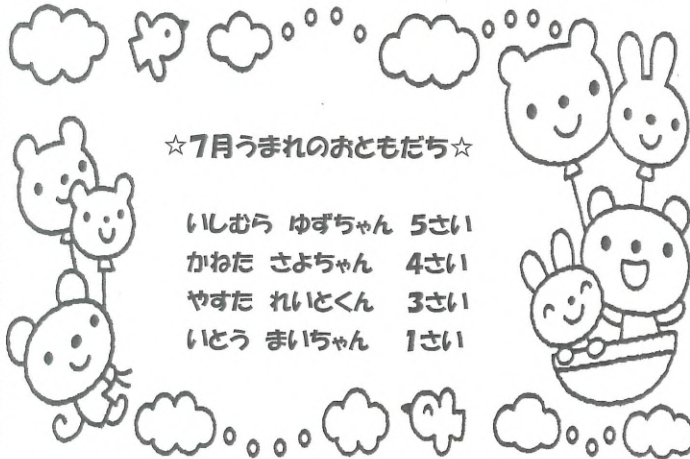 ☆7月うまれのおともだち☆
いしむら ゆずちゃん 5さい
かねた さよちゃん 4さい
やすた れいとくん 3さい
いとう まいちゃん 1さい